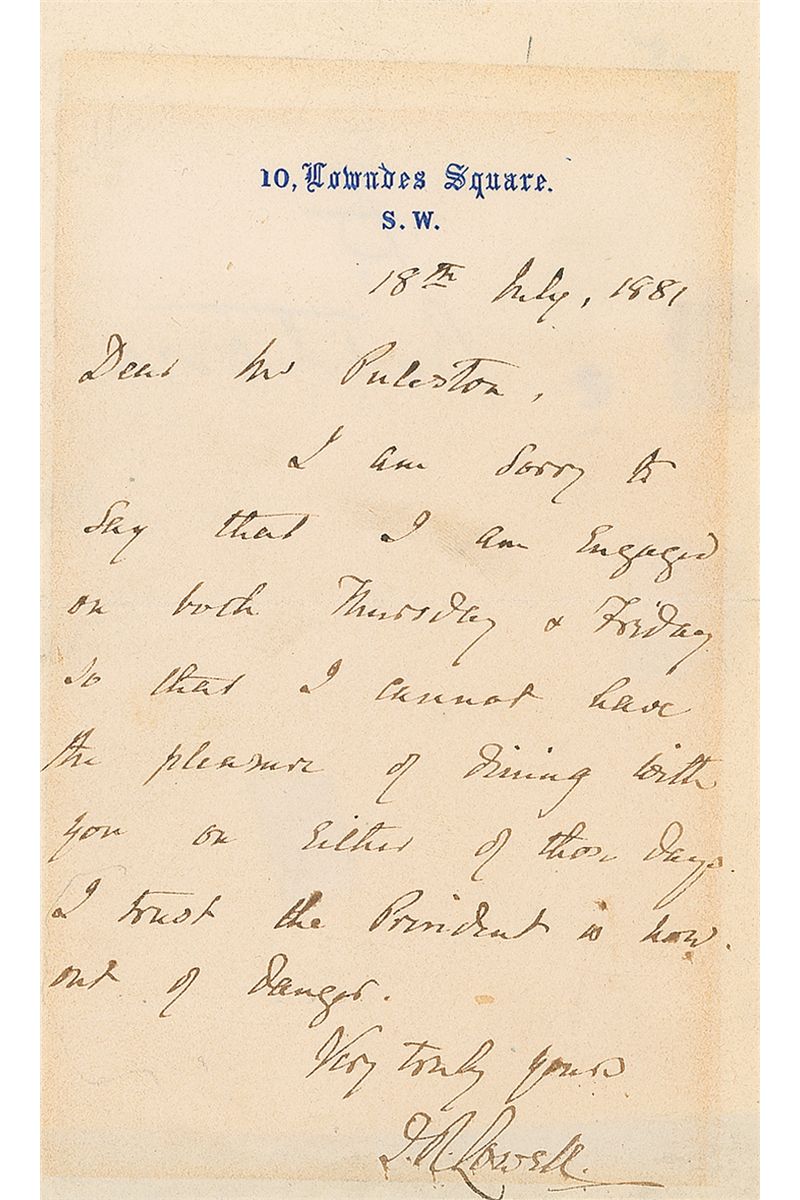 10, Lowndes Square.
S. W.
18th July, 1881
Dear Mr Puleston,
I am sorry to
say that I am engaged
on both Thursday & Friday
so that I cannot have
the pleasure of dining with
you on either of those days.
I trust the President is now
out of danger.
Very truly yours
J. R. Lowell.